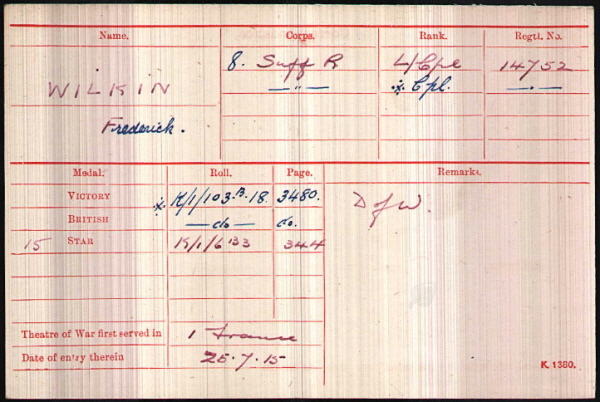 Name. Corps. Rank. Regtl. No.
WILKIN 8. Suff R L/Cpl 14752
Frederick. —"— ※ Cpl. —"—
Medal. Roll. Page. Remarks.
VICTORY ※ K/1/103.B.18. 3480. D of W.
BRITISH —do— do.
15 STAR K/1/6 B3 344
Theatre of War first served in 1 France
Date of entry therein 25.7.15
K 1380.